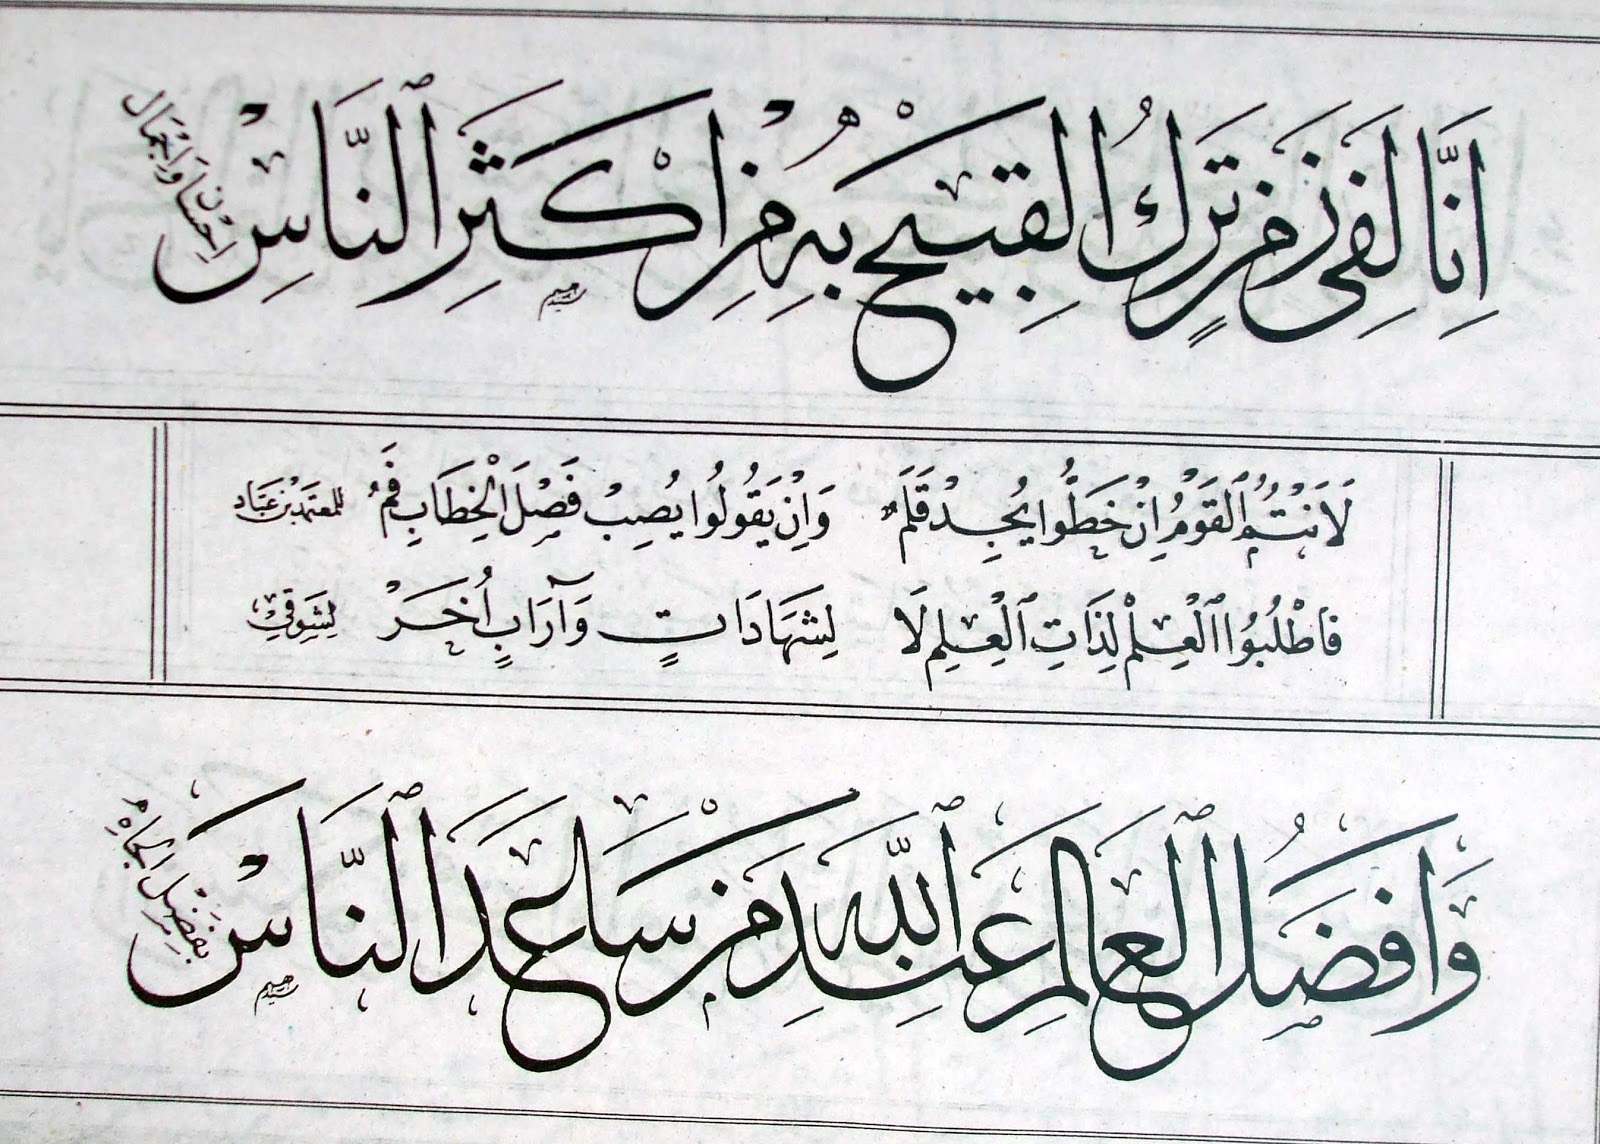 إِنَّا لَفِي زَمَنٍ تَرْكُ ٱلْقَبِيحِ بِهِ مِنْ أَكْثَرِ ٱلنَّاسِ إِحْسَانٌ وَإِجْمَالُ
لَأَنْتُمُ ٱلْقَوْمُ إِنْ خَطُّوا يُجِدْ قَلَمٌ وَإِنْ يَقُولُوا يُصِبْ فَصْلَ الْخِطَابِ فَمُ للمعتمد بن عباد
فَاطْلُبُوا ٱلْعِلْمَ لِذَاتِ ٱلْعِلْمِ لَا لِشَهَادَاتٍ وَآرَابٍ أُخَرْ لِشَوْقِي
وَأَفْضَلُ ٱلْعَالَمِ عِنْدَ ٱللَّهِ مَنْ سَاعَدَ ٱلنَّاسَ بِفَضْلِ الْجَاهِ